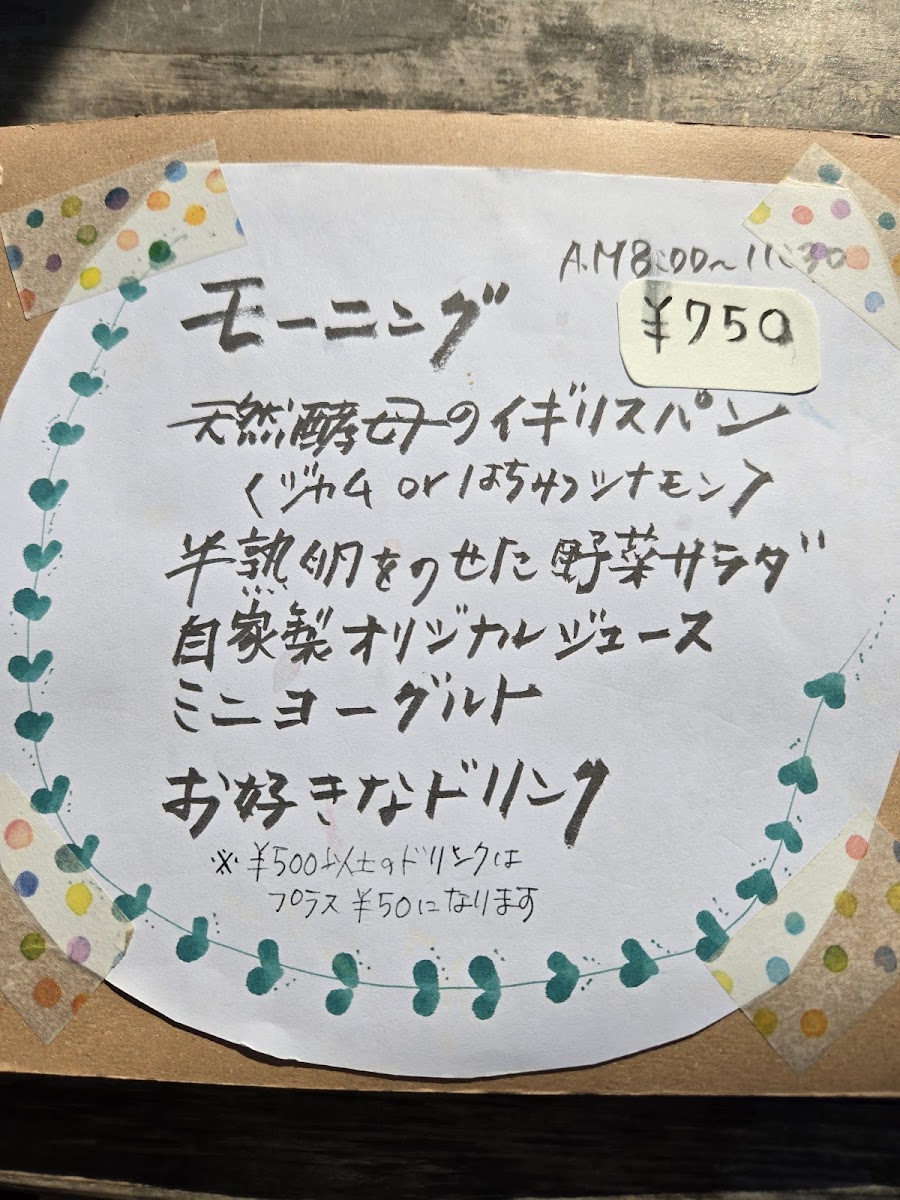 A.M8:00~11:30
モーニング
¥750
天然酵母のイギリスパン
〈ジャム or はちみつシナモン〉
半熟卵をのせた野菜サラダ
自家製オリジナルジュース
ミニヨーグルト
お好きなドリンク
※¥500以上のドリンクは
プラス¥50になります